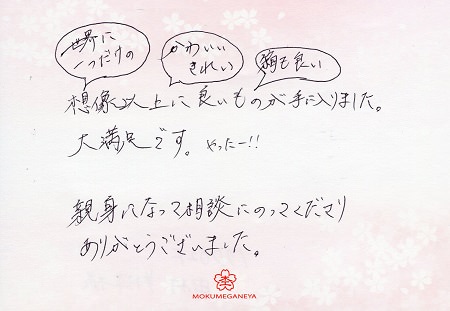 世界に
一つだけの
かわいい
きれい
柄も良い
想像以上に良いものが手に入りました。
大満足です。やったー!!
親身になって相談にのってくださり
ありがとうございました。
MOKUMEGANEYA